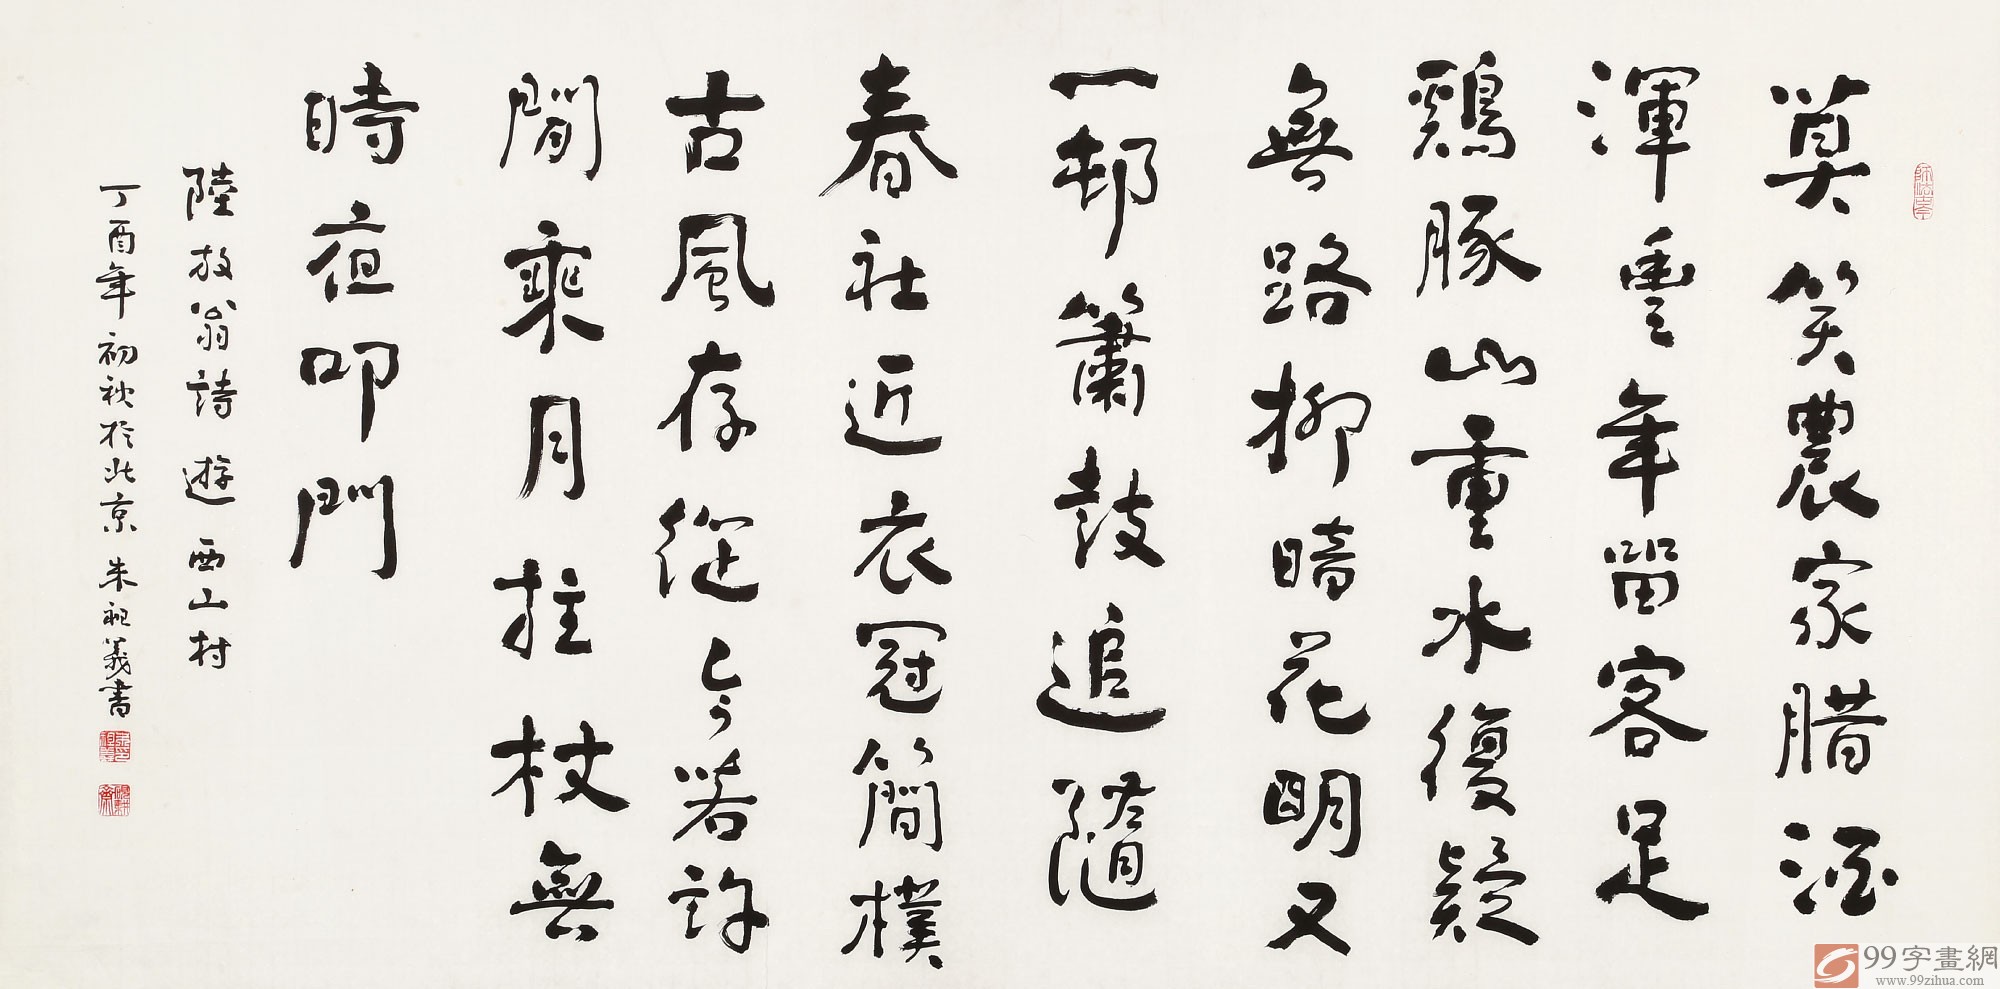 莫笑農家腊酒
渾豊年留客足
鷄豚山重水復疑
無路柳暗花明又
一邨簫鼓追隨
春社近衣冠簡樸
古風存從今若許
閒乘月拄杖無
時夜叩門
陸放翁詩遊西山村
丁酉年初秋於北京朱祖義書
99字畫網
www.99zihua.com